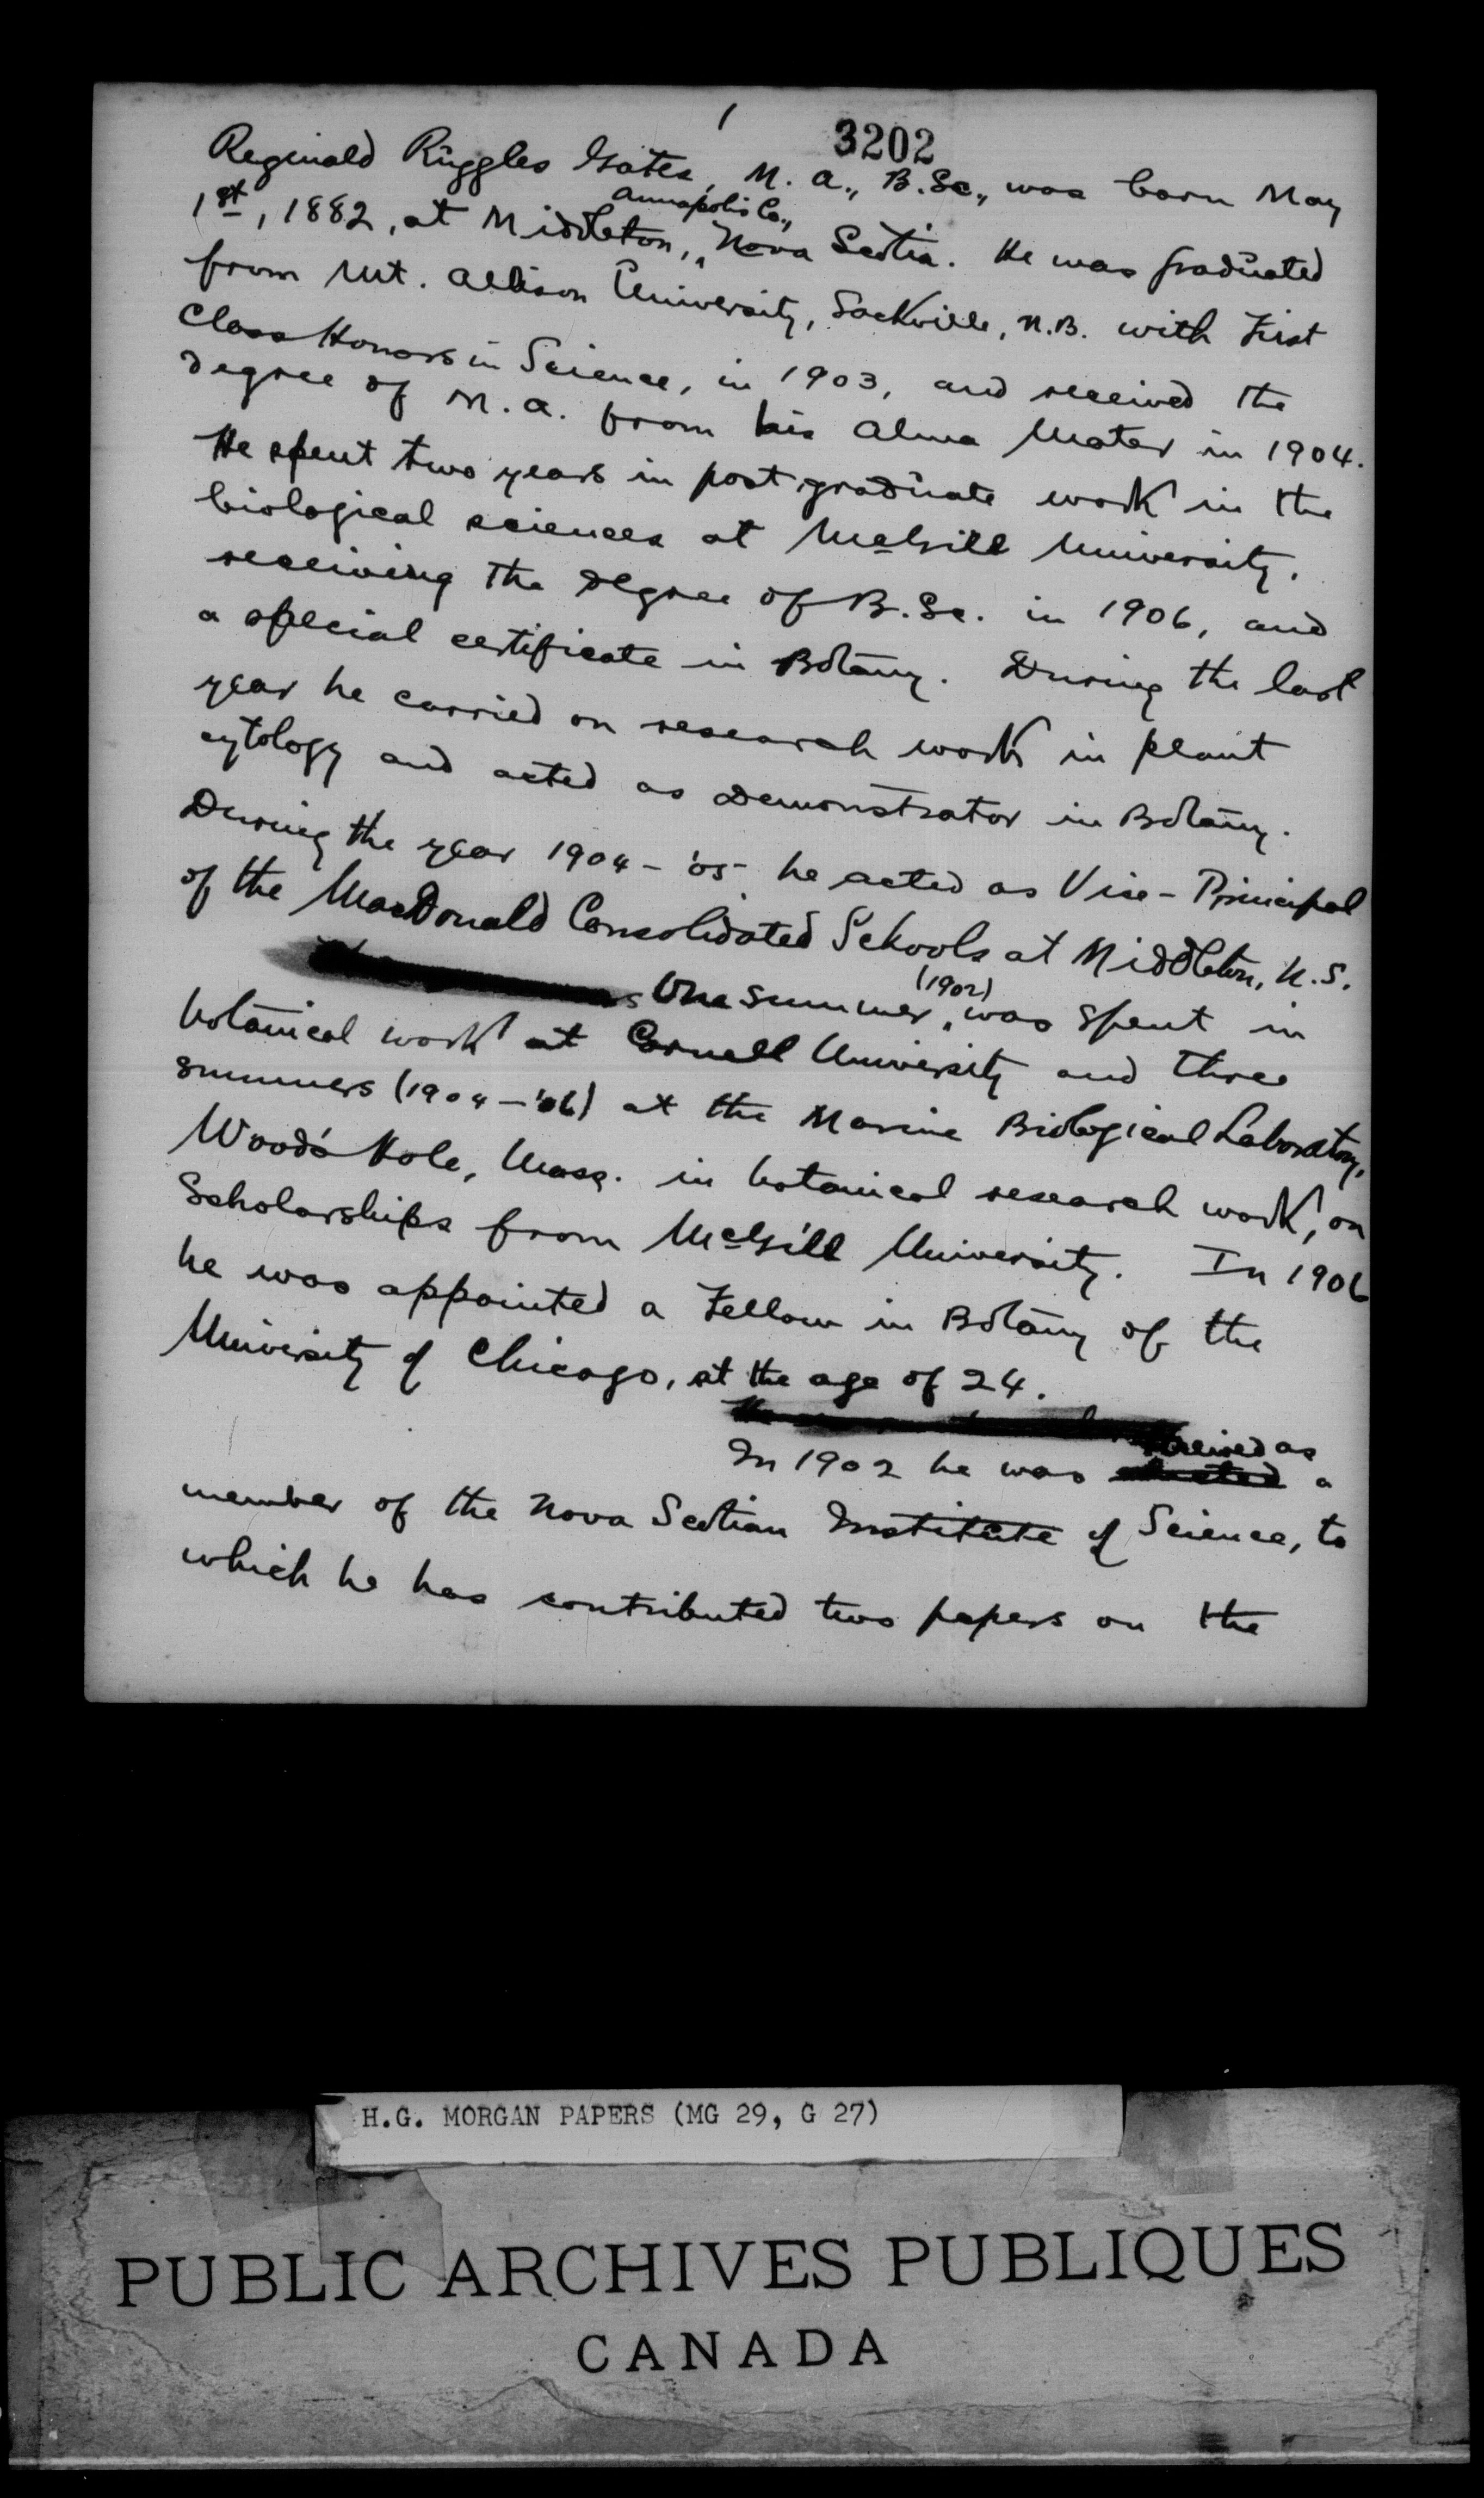 1
3202
Reginald Ruggles Gates, M.A., B.Sc., was born May
1st, 1882, at Middleton, Annapolis Co., Nova Scotia. He was graduated
from Mt. Allison University, Sackville, N.B. with First
Class Honors in Science, in 1903, and received the
degree of M.A. from his Alma Mater in 1904.
He spent two years in post graduate work in the
biological sciences at McGill University,
receiving the degree of B.Sc. in 1906, and
a special certificate in Botany. During the last
year he carried on research work in plant
cytology and acted as Demonstrator in Botany.
During the year 1904-'05 he acted as Vice-Principal
of the MacDonald Consolidated Schools at Middleton, N.S.
One summer (1902) was spent in
botanical work at Cornell University and three
summers (1904-'06) at the Marine Biological Laboratory,
Wood's Hole, Mass. in botanical research work, on
Scholarships from McGill University. In 1906
he was appointed a Fellow in Botany of the
University of Chicago, at the age of 24.
In 1902 he was received as a
member of the Nova Scotian Institute of Science, to
which he has contributed two papers on the
H.G. MORGAN PAPERS (MG 29, G 27)
PUBLIC ARCHIVES PUBLIQUES
CANADA